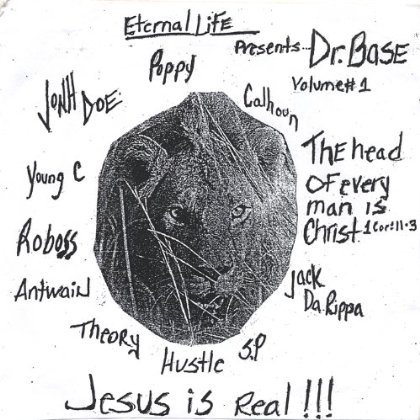 Eternal Life
Presents... Dr. Base
Volume #1
Poppy
Calhoun
JonH Doe
Young C
Roboss
Antwain
Theory
Hustle
S.P
Jack
Da Rippa
The head
of every
man is
Christ 1 Cor: 11-3
Jesus is Real!!!